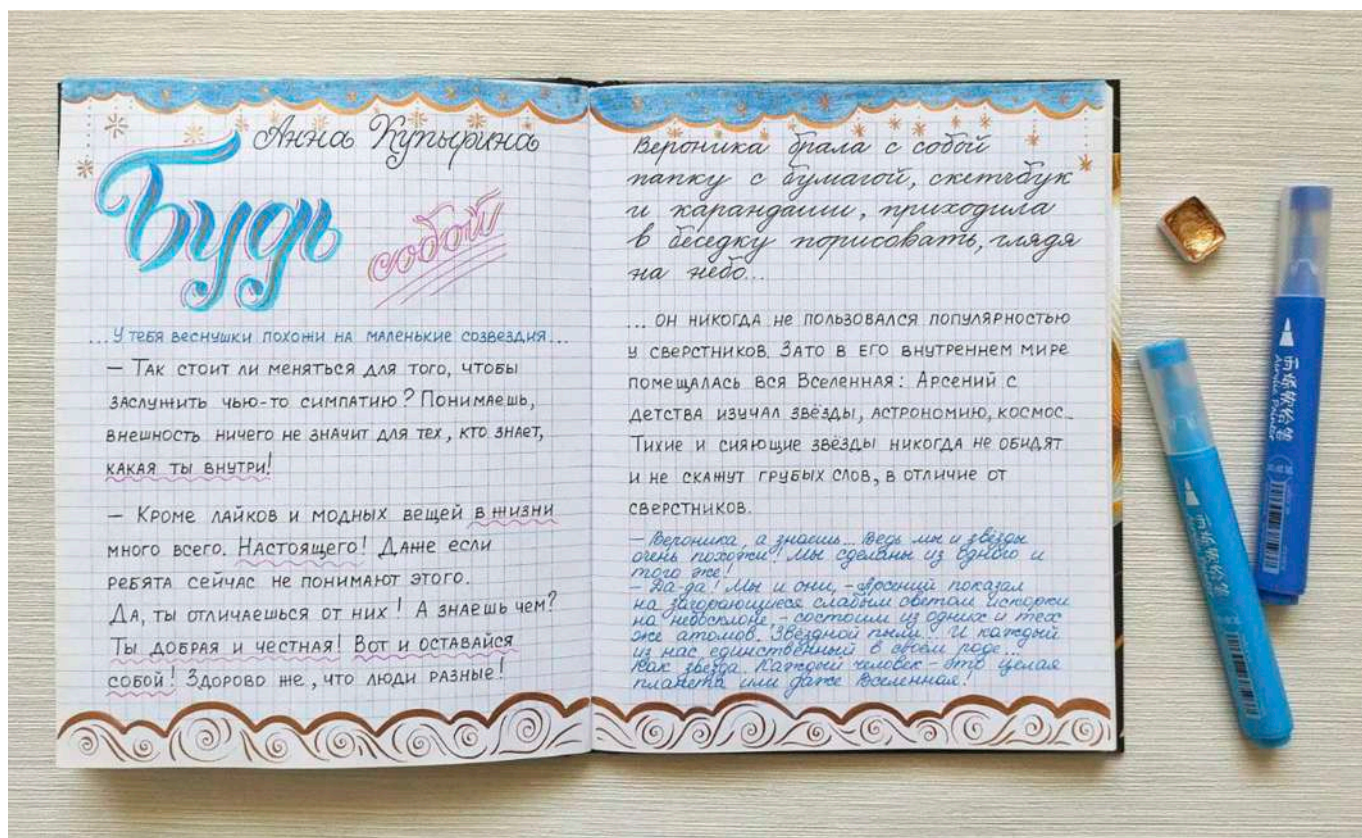 Анна Купырина
Будь
собой
...У тебя веснушки похожи на маленькие созвездия...
— Так стоит ли меняться для того, чтобы
заслужить чью-то симпатию? Понимаешь,
внешность ничего не значит для тех, кто знает,
какая ты внутри!
— Кроме лайков и модных вещей в жизни
много всего. Настоящего! Даже если
ребята сейчас не понимают этого.
Да, ты отличаешься от них! А знаешь чем?
Ты добрая и честная! Вот и оставайся
собой! Здорово же, что люди разные!
Вероника брала с собой
папку с бумагой, скетчбук
и карандаши, приходила
в беседку порисовать, глядя
на небо...
... он никогда не пользовался популярностью
у сверстников. Зато в его внутреннем мире
помещалась вся Вселенная: Арсений с
детства изучал звёзды, астрономию, космос...
Тихие и сияющие звёзды никогда не обидят
и не скажут грубых слов, в отличие от
сверстников.
— Вероника, а знаешь... Ведь мы и звёзды
очень похожи! Мы сделаны из одного и
того же!
— Да-да! Мы и они, – Арсений показал
на загорающиеся слабым светом искорки
на небосклоне, – состоим из одних и тех
же атомов. Звёздной пыли! И каждый
из нас единственный в своём роде...
Как звезда. Каждый человек – это целая
планета или даже Вселенная!